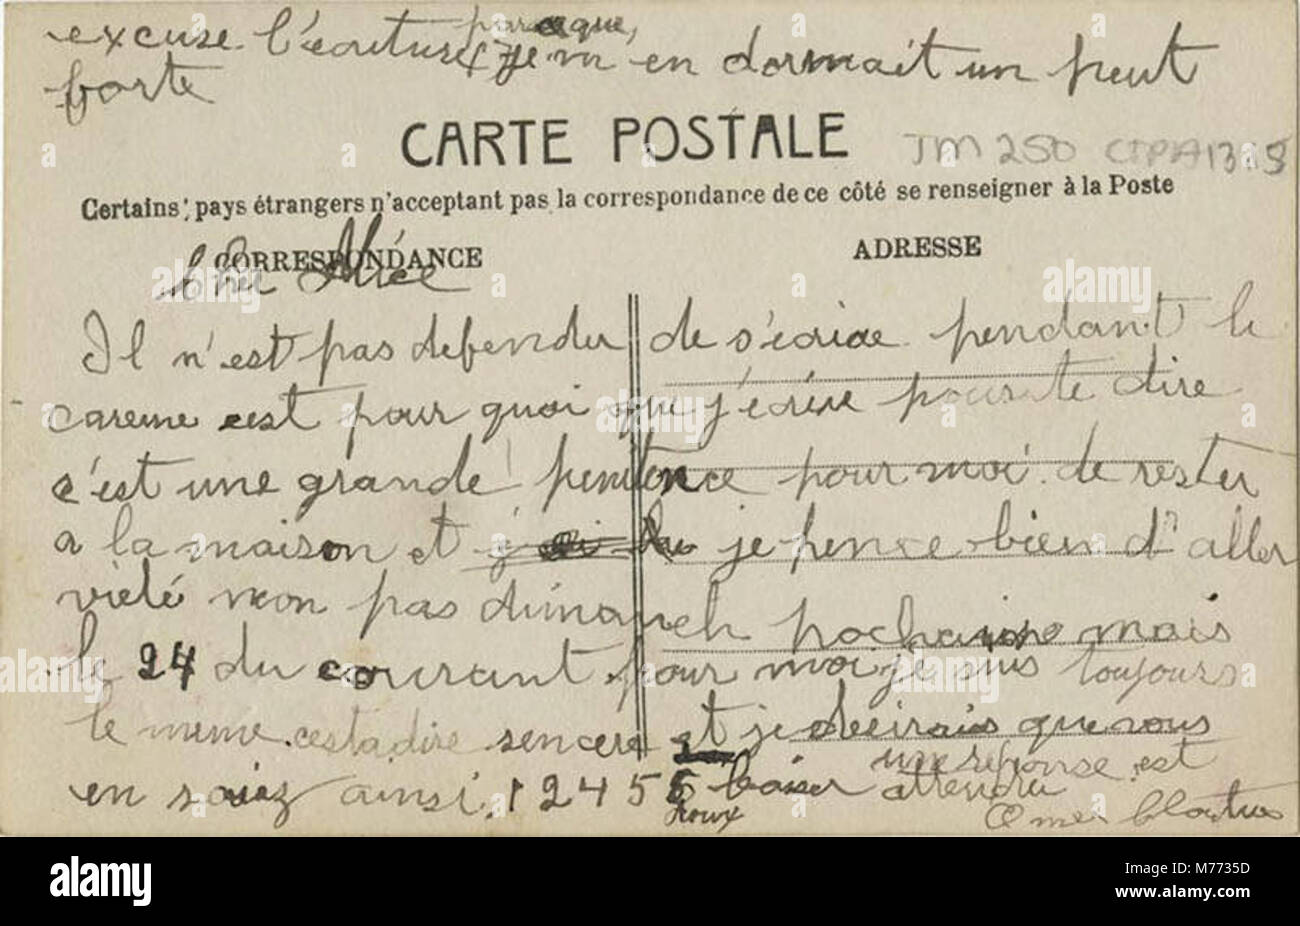 excuse l'écriture parceque,
je m en dormait un peut
forte
CARTE POSTALE
JM 250 CTPA13.5
Certains pays étrangers n'acceptant pas la correspondance de ce côté se renseigner à la Poste
CORRESPONDANCE
ADRESSE
Cher Alice
Il n'est pas defender de s'écrire pendant le
careme cest pour quoi que j'écrire pour te dire
c'est une grande penitence pour moi de rester
a la maison et je pence bien d'aller
vieté non pas dimanch pochaine mais
le 24 du courant pour moi je suis toujours
le meme cestadire sencere et je deeirais que vous
en soiez ainsi. 1 2 4 5 6 baiser
doux
une reponse est
attendu
Omer
alamy
Image ID: M7735D
www.alamy.com